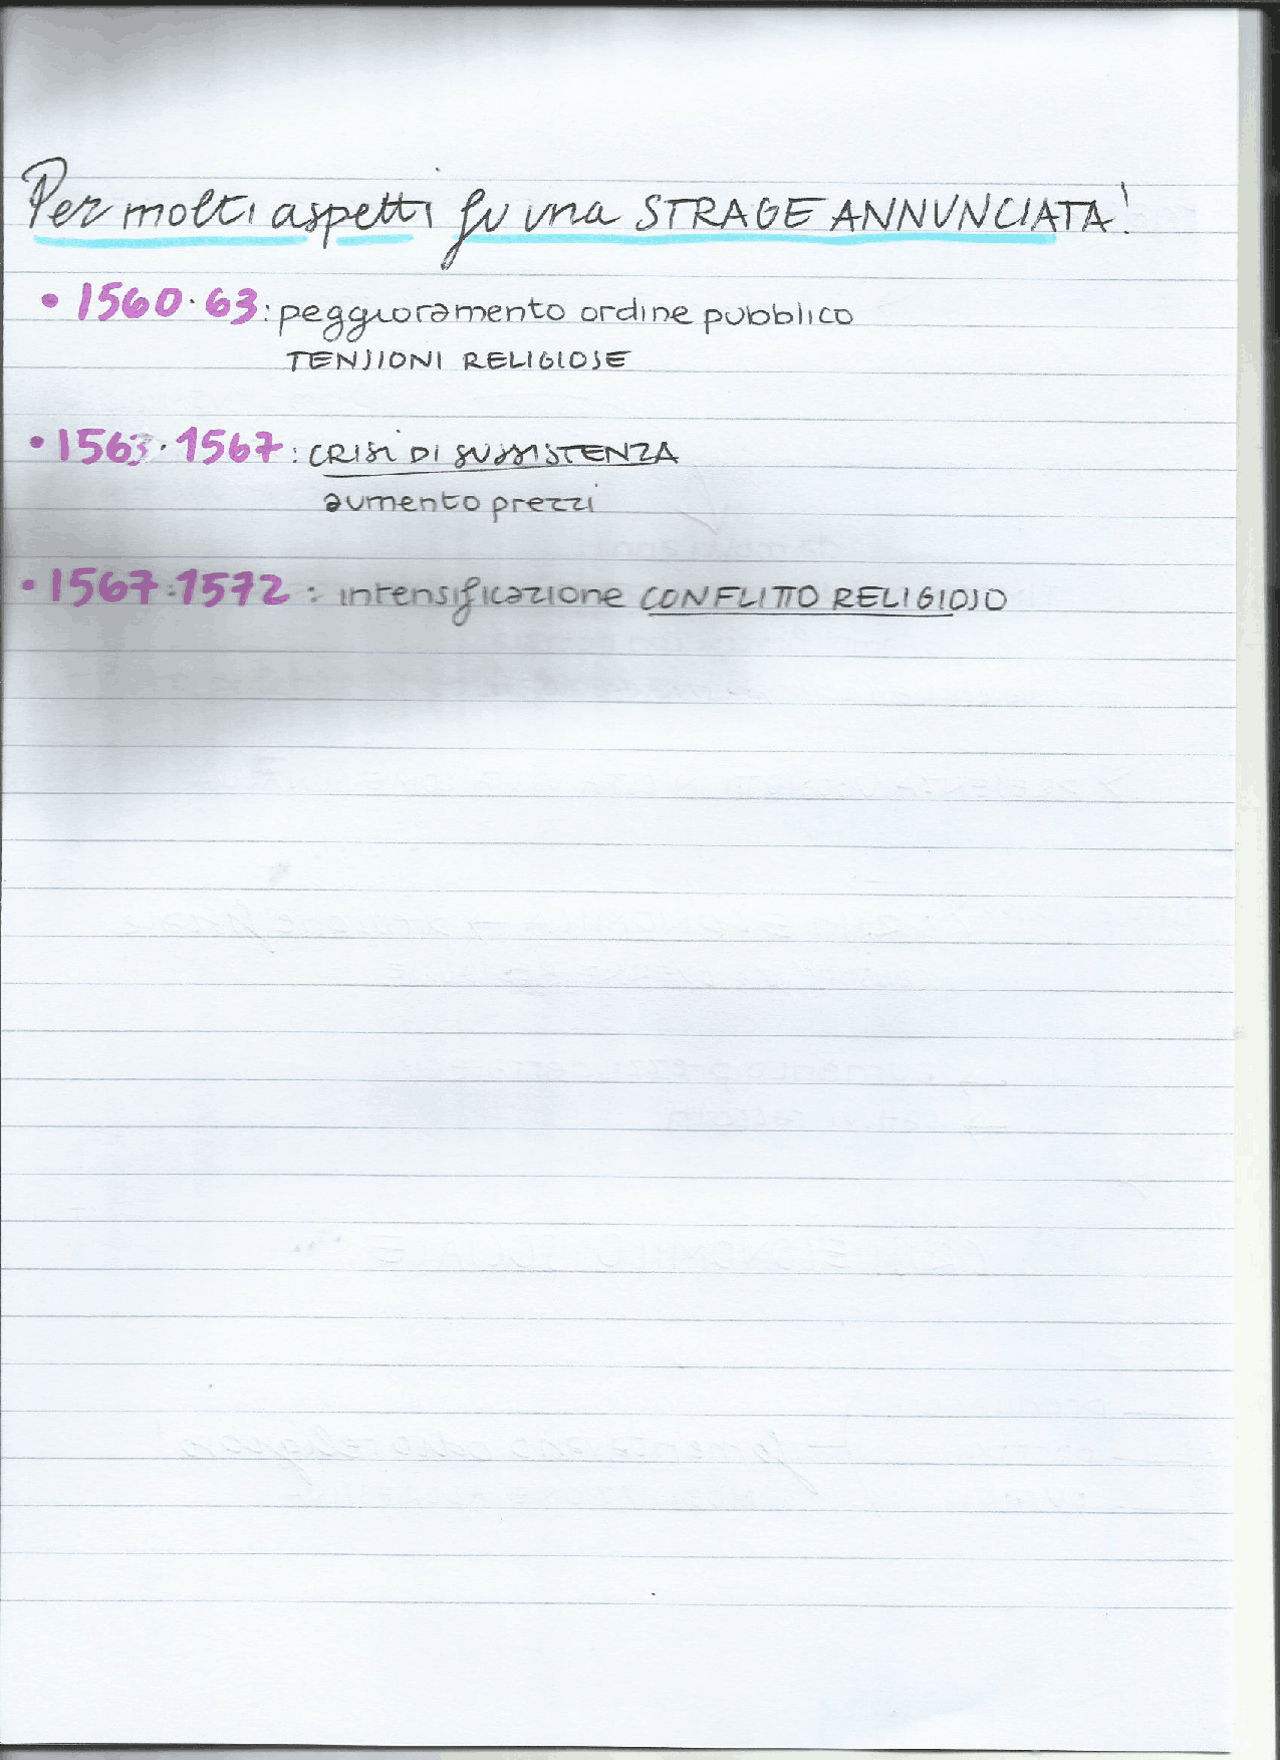 Per molti aspetti fu una STRAGE ANNUNCIATA!
• 1560·63: peggioramento ordine pubblico
TENSIONI RELIGIOSE
• 1563·1567: CRISI DI SUSSISTENZA
aumento prezzi
• 1567·1572: intensificazione CONFLITTO RELIGIOSO